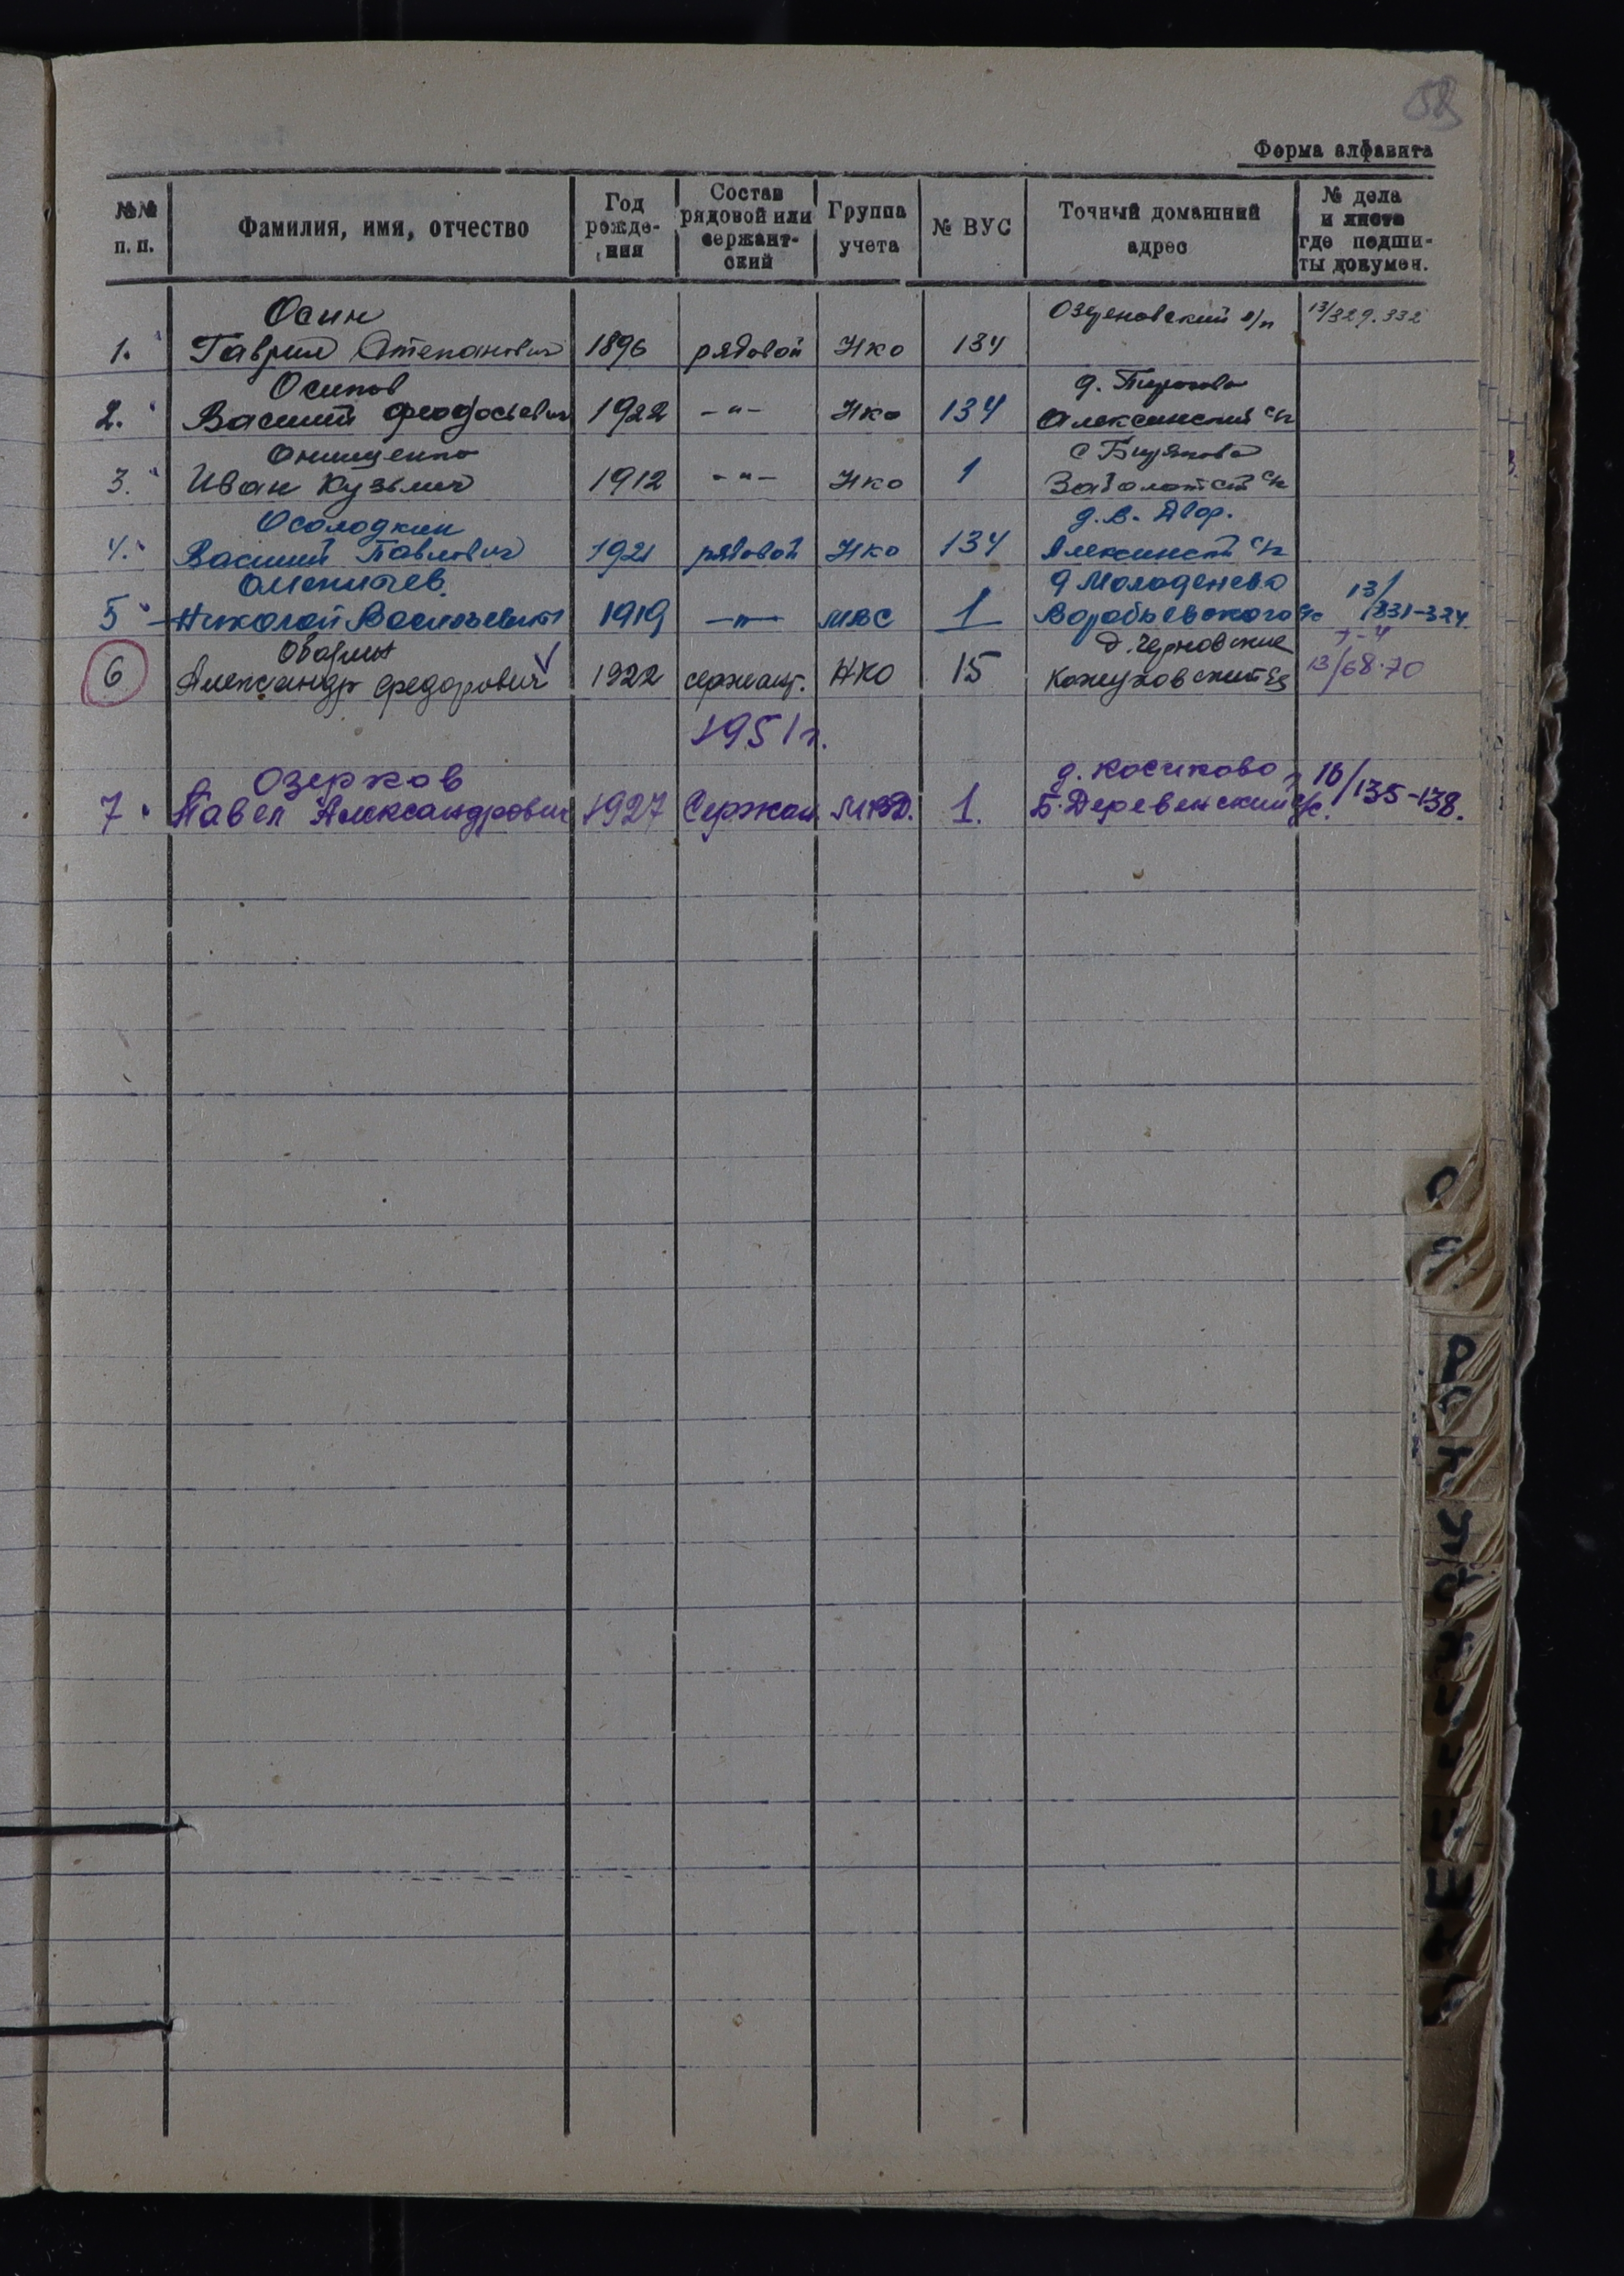 58
Форма алфавита
№№ п. п.
Фамилия, имя, отчество
Год рожде- ния
Состав рядовой или сержант- ский
Группа учета
№ ВУС
Точный домашний адрес
№ дела и листа где подши- ты докумен.
Осин
1. Гаврил Степанович 1896 рядовой Нко 134 с/п 13/329.332
Осипов
2. Василий Феодосьевич 1922 -"- Нко 134 д. Пирогово Алексинский с/с
Онищенко
3. Иван Кузьмич 1912 -"- Нко 1 с Заболотск с/с
Осолодкин
4. Василий Павлович 1921 рядовой Нко 134 д. В. Двор. Алексинск с/с
Оленичев.
5 Николай Васильевич 1919 -"- МВС 1 д Молоденево Воробьевского с/с 13/331-324
Обарин
6 Александр Федорович 1922 сержант. НКО 15 д. Черновские Кожуховский с/с 13/68-70
1951 г.
Озерков
7. Павел Александрович 1927 Сержан. МВД. 1. д. Косиково Б. Деревенский с/с. 16/135-138.
О
П
Р
С
Т
У